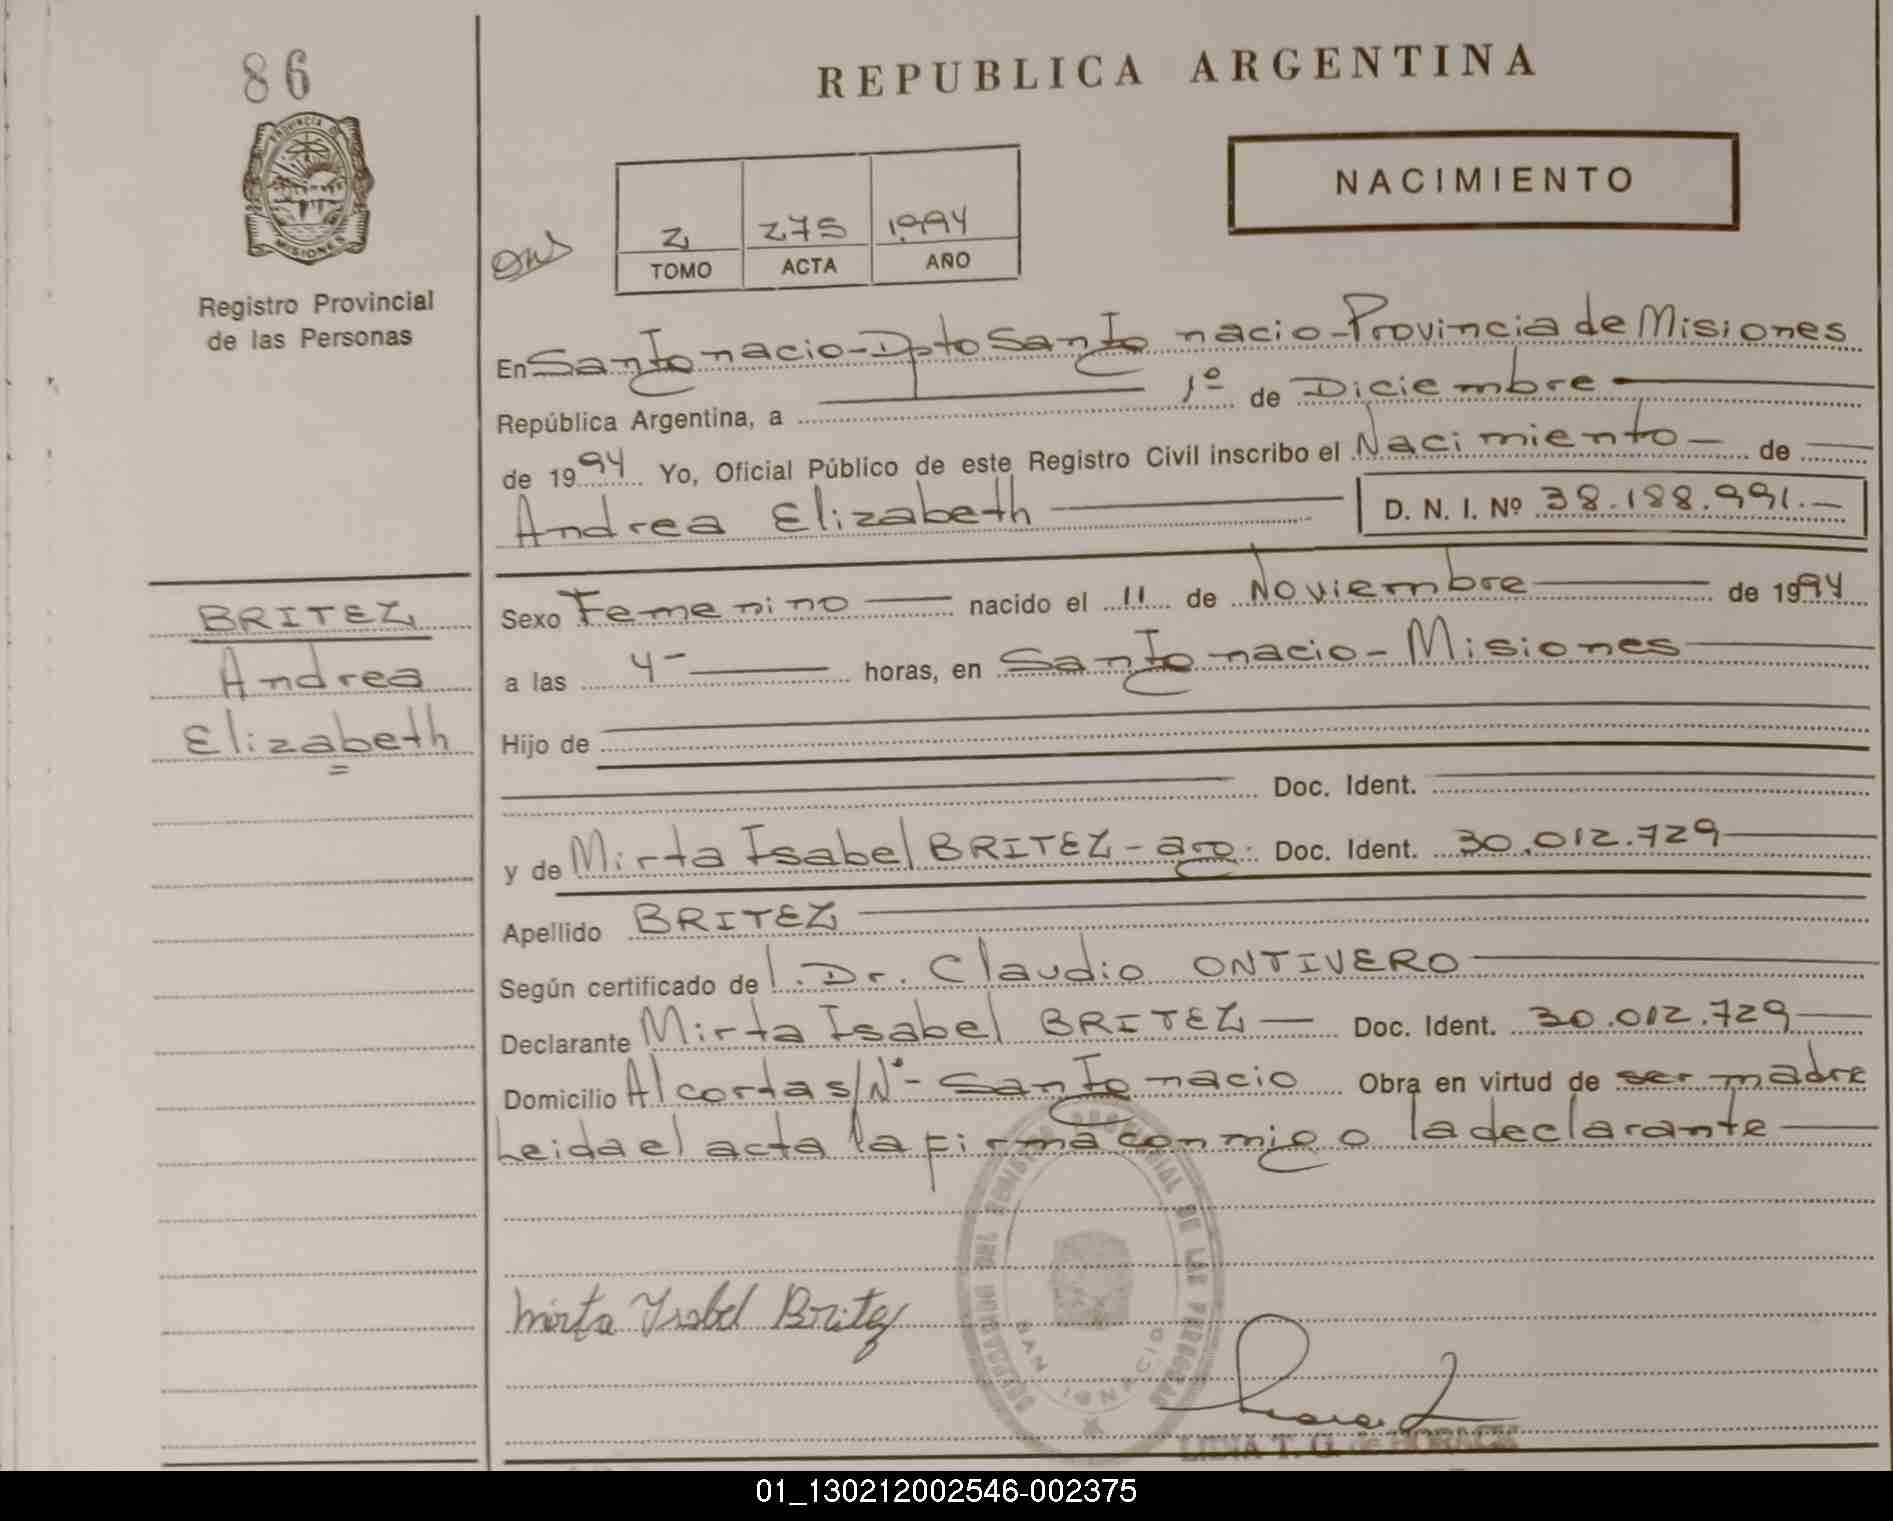 86
REPUBLICA ARGENTINA
PROVINCIA DE
MISIONES
NACIMIENTO
2 275 1994
TOMO ACTA AÑO
Registro Provincial
de las Personas
En San Ignacio - Dpto San Ignacio - Provincia de Misiones
República Argentina, a 1º de Diciembre
de 1994 Yo, Oficial Público de este Registro Civil inscribo el Nacimiento - de
Andrea Elizabeth D. N. I. Nº 38.188.991.-
BRITEZ
Andrea
Elizabeth
Sexo Femenino nacido el 11 de Noviembre de 1994
a las 4- horas, en San Ignacio - Misiones
Hijo de
Doc. Ident.
y de Mirta Isabel BRITEZ - arg. Doc. Ident. 30.012.729
Apellido BRITEZ
Según certificado de l. Dr. Claudio ONTIVERO
Declarante Mirta Isabel BRITEZ - Doc. Ident. 30.012.729
Domicilio Alcorta s/Nº - San Ignacio Obra en virtud de ser madre
Leida el acta la firma conmigo la declarante
PROVINCIAL DE LAS PERSONAS
SAN IGNACIO
Mirta Ysabel Britez
LIDIA T. G. de HORACK
01_130212002546-002375